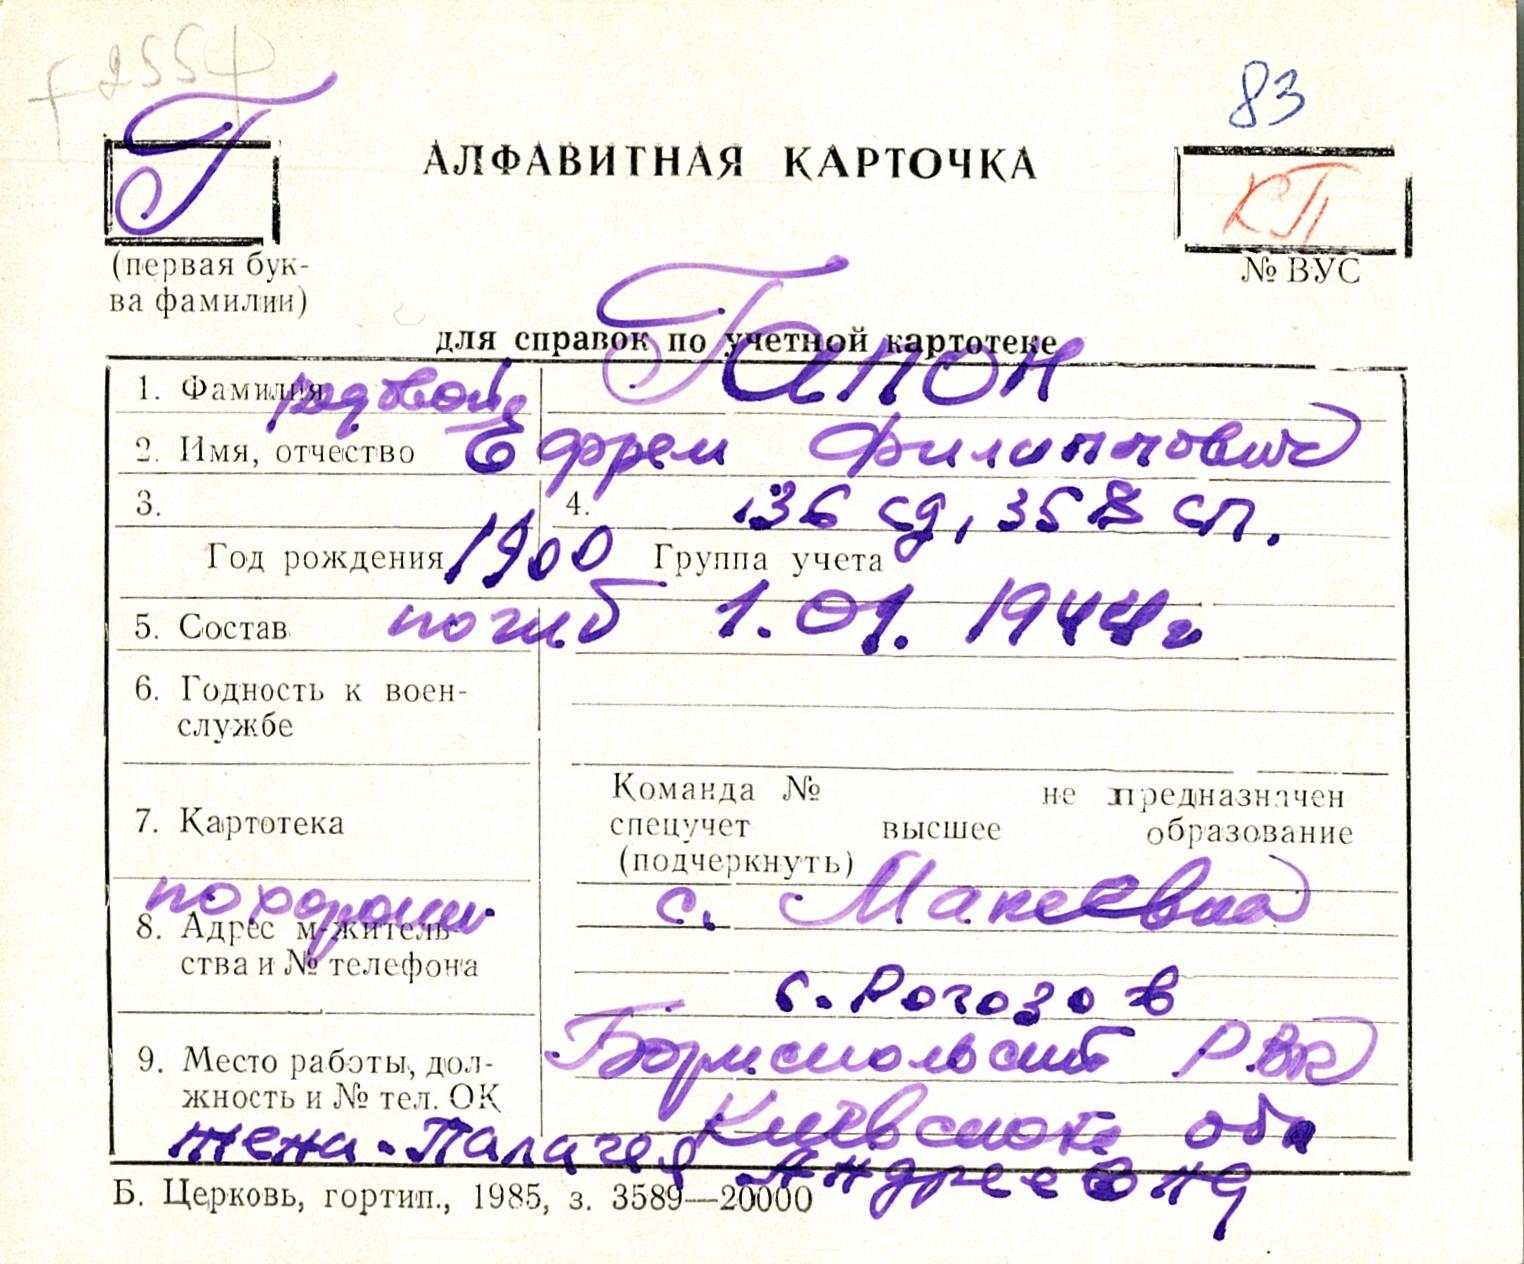 83
Г
АЛФАВИТНАЯ КАРТОЧКА
КП
(первая бук-
ва фамилии)
№ ВУС
для справок по учетной картотеке
1. Фамилия рядовой Гапон
2. Имя, отчество Ефрем Филиппович
3. 4. 136 сд, 358 сп.
Год рождения 1900 Группа учета
5. Состав погиб 1.01.1944г
6. Годность к воен-
службе
7. Картотека
Команда № не предназначен
спецучет высшее образование
(подчеркнуть)
похорон. с. Макеевка
8. Адрес м-житель-
ства и № телефона
с. Рогозов
9. Место работы, дол-
жность и № тел. ОК
Бориспольский РВК
Киевской обл
жена - Палагея Андреевна
Б. Церковь, гортип., 1985, з. 3589—20000